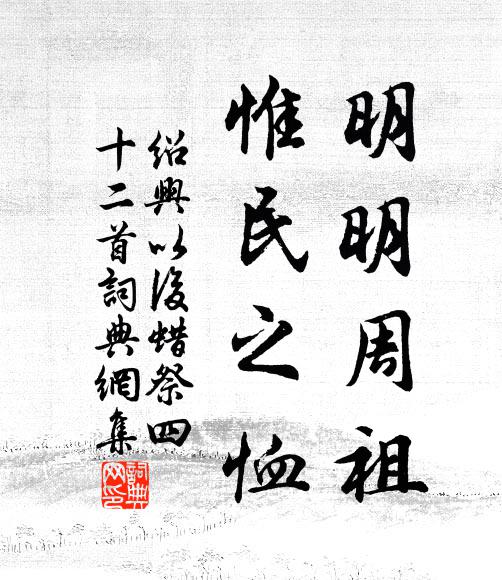 明明周祖
惟民之恤
紹興以後蜡祭四
十二首詞典網集
詞典
网印